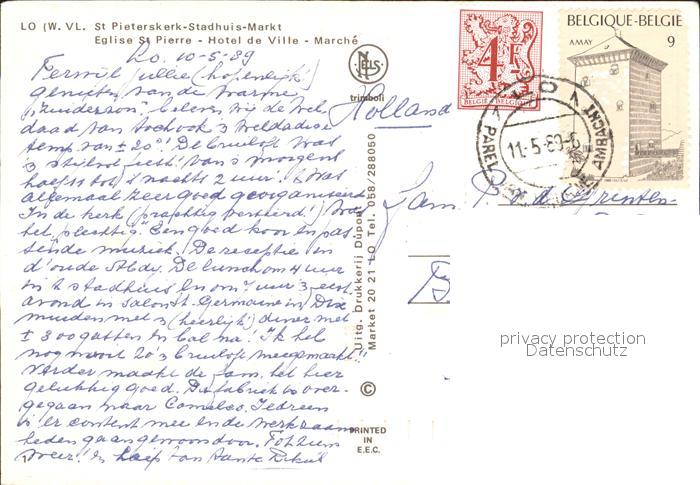 LO (W. VL. St Pieterskerk-Stadhuis-Markt
Eglise St Pierre - Hotel de Ville - Marché
Lo. 10-5-89
Terwijl jullie (hopenlijk)
genieten van de warme
"zuiderzon" beleven wij de wel
daad van toch ook 'n weldadige
temp. van ± 20°! De bruiloft was
'n stijlvol feest! van 's morgens
half tot 's nachts 2 uur! 't Was
allemaal zeer goed georganiseerd
In de kerk (prachtig versierd!) was
het plechtig. Een goed koor en pas
sende muziek. De receptie in
d'oude Abdij. De lunch om 4 uur
in 't stadhuis en om 7 uur 'n feest
avond in salons St. Germain in Dix
muiden met 'n (heerlijk) diner met
± 300 gasten en bal na! Ik heb
nog nooit zo'n bruiloft meegemaakt!!
Verder maakt de fam. het hier
gelukkig goed. De fabriek is over-
gegaan naar Iedreen
is er content mee en de werkzaam
heden gaan gewoon door. Tot ziens
weer! en van tante
NELS
trimboli
Uitg. Drukkerij Dupon
Market 20 21 LO Tel. 058/288050
©
PRINTED
IN
E.E.C.
Holland
Fam. P. v. d.
4F
BELGIË-BELGIQUE
BELGIQUE-BELGIE
AMAY 9
11-5-89
privacy protection
Datenschutz